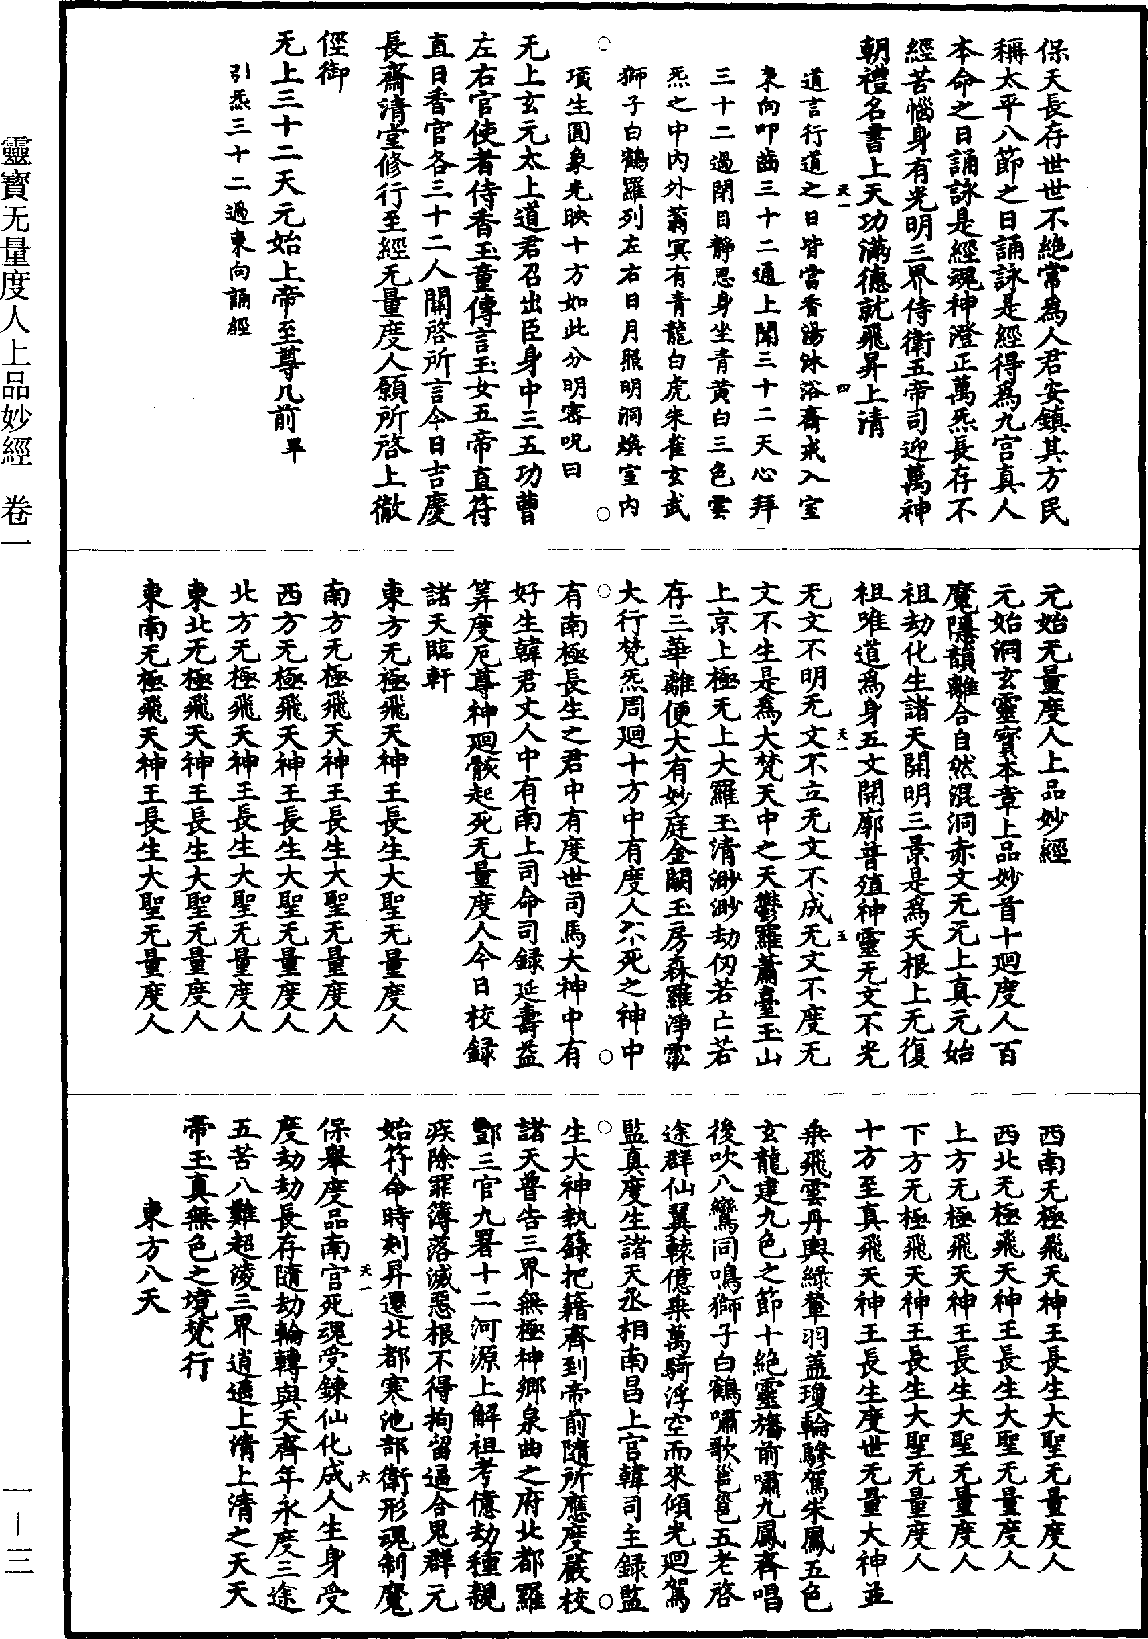 保天長存世世不絕常爲人君安鎮其方民
稱太平八節之日誦詠是經得爲九宮真人
本命之日誦詠是經魂神澄正萬炁長存不
經苦惱身有光明三界侍衛五帝司迎萬神
朝禮名書上天功滿德就飛昇上清
道言行道之日皆當香湯沐浴齋戒入室
東向叩齒三十二通上聞三十二天心拜
三十二過閉目靜思身坐青黃白三色雲
炁之中內外蓊冥有青龍白虎朱雀玄武
獅子白鶴羅列左右日月照明洞煥室內
項生圓象光映十方如此分明密呪曰
无上玄元太上道君召出臣身中三五功曹
左右官使者侍香玉童傳言玉女五帝直符
直日香官各三十二人關啓所言今日吉慶
長齋清堂修行至經无量度人願所啓上徹
徑御
无上三十二天元始上帝至尊几前 畢
引炁三十二過東向誦經
天一
四
元始无量度人上品妙經
元始洞玄靈寶本章上品妙首十迴度人百
魔隱韻離合自然混洞赤文无无上真元始
祖劫化生諸天開明三景是爲天根上无復
祖唯道爲身五文開廓普殖神靈无文不光
无文不明无文不立无文不成无文不度无
文不生是爲大梵天中之天鬱羅蕭臺玉山
上京上極无上大羅玉清渺渺劫仞若亡若
存三華離便大有妙庭金闕玉房森羅淨泓
大行梵炁周迴十方中有度人不死之神中
有南極長生之君中有度世司馬大神中有
好生韓君丈人中有南上司命司録延壽益
筭度厄尊神迴骸起死无量度人今日校録
諸天臨軒
東方无極飛天神王長生大聖无量度人
南方无極飛天神王長生大聖无量度人
西方无極飛天神王長生大聖无量度人
北方无極飛天神王長生大聖无量度人
東北无極飛天神王長生大聖无量度人
東南无極飛天神王長生大聖无量度人
天一
五
西南无極飛天神王長生大聖无量度人
西北无極飛天神王長生大聖无量度人
上方无極飛天神王長生大聖无量度人
下方无極飛天神王長生大聖无量度人
十方至真飛天神王長生度世无量大神並
乘飛雲丹輿綠輦羽蓋瓊輪驂駕朱鳳五色
玄龍建九色之節十絕靈旛前嘯九鳳齊唱
後吹八鸞同鳴獅子白鶴嘯歌邕邕五老啓
途群仙翼轅億乘萬騎浮空而來傾光迴駕
監真度生諸天丞相南昌上宮韓司主録監
生大神執籙把籍齊到帝前隨所應度嚴校
諸天普告三界無極神鄉泉曲之府北都羅
酆三官九署十二河源上解祖考億劫種親
疾除罪簿落滅惡根不得拘留逼合鬼群元
始符命時刻昇遷北都寒池部衛形魂制魔
保舉度品南宮死魂受鍊仙化成人生身受
度劫劫長存隨劫輪轉與天齊年永度三途
五苦八難超淩三界逍遙上清上清之天天
帝玉真無色之境梵行
東方八天
天一
六
靈寶无量度人上品妙經 卷一
一—三